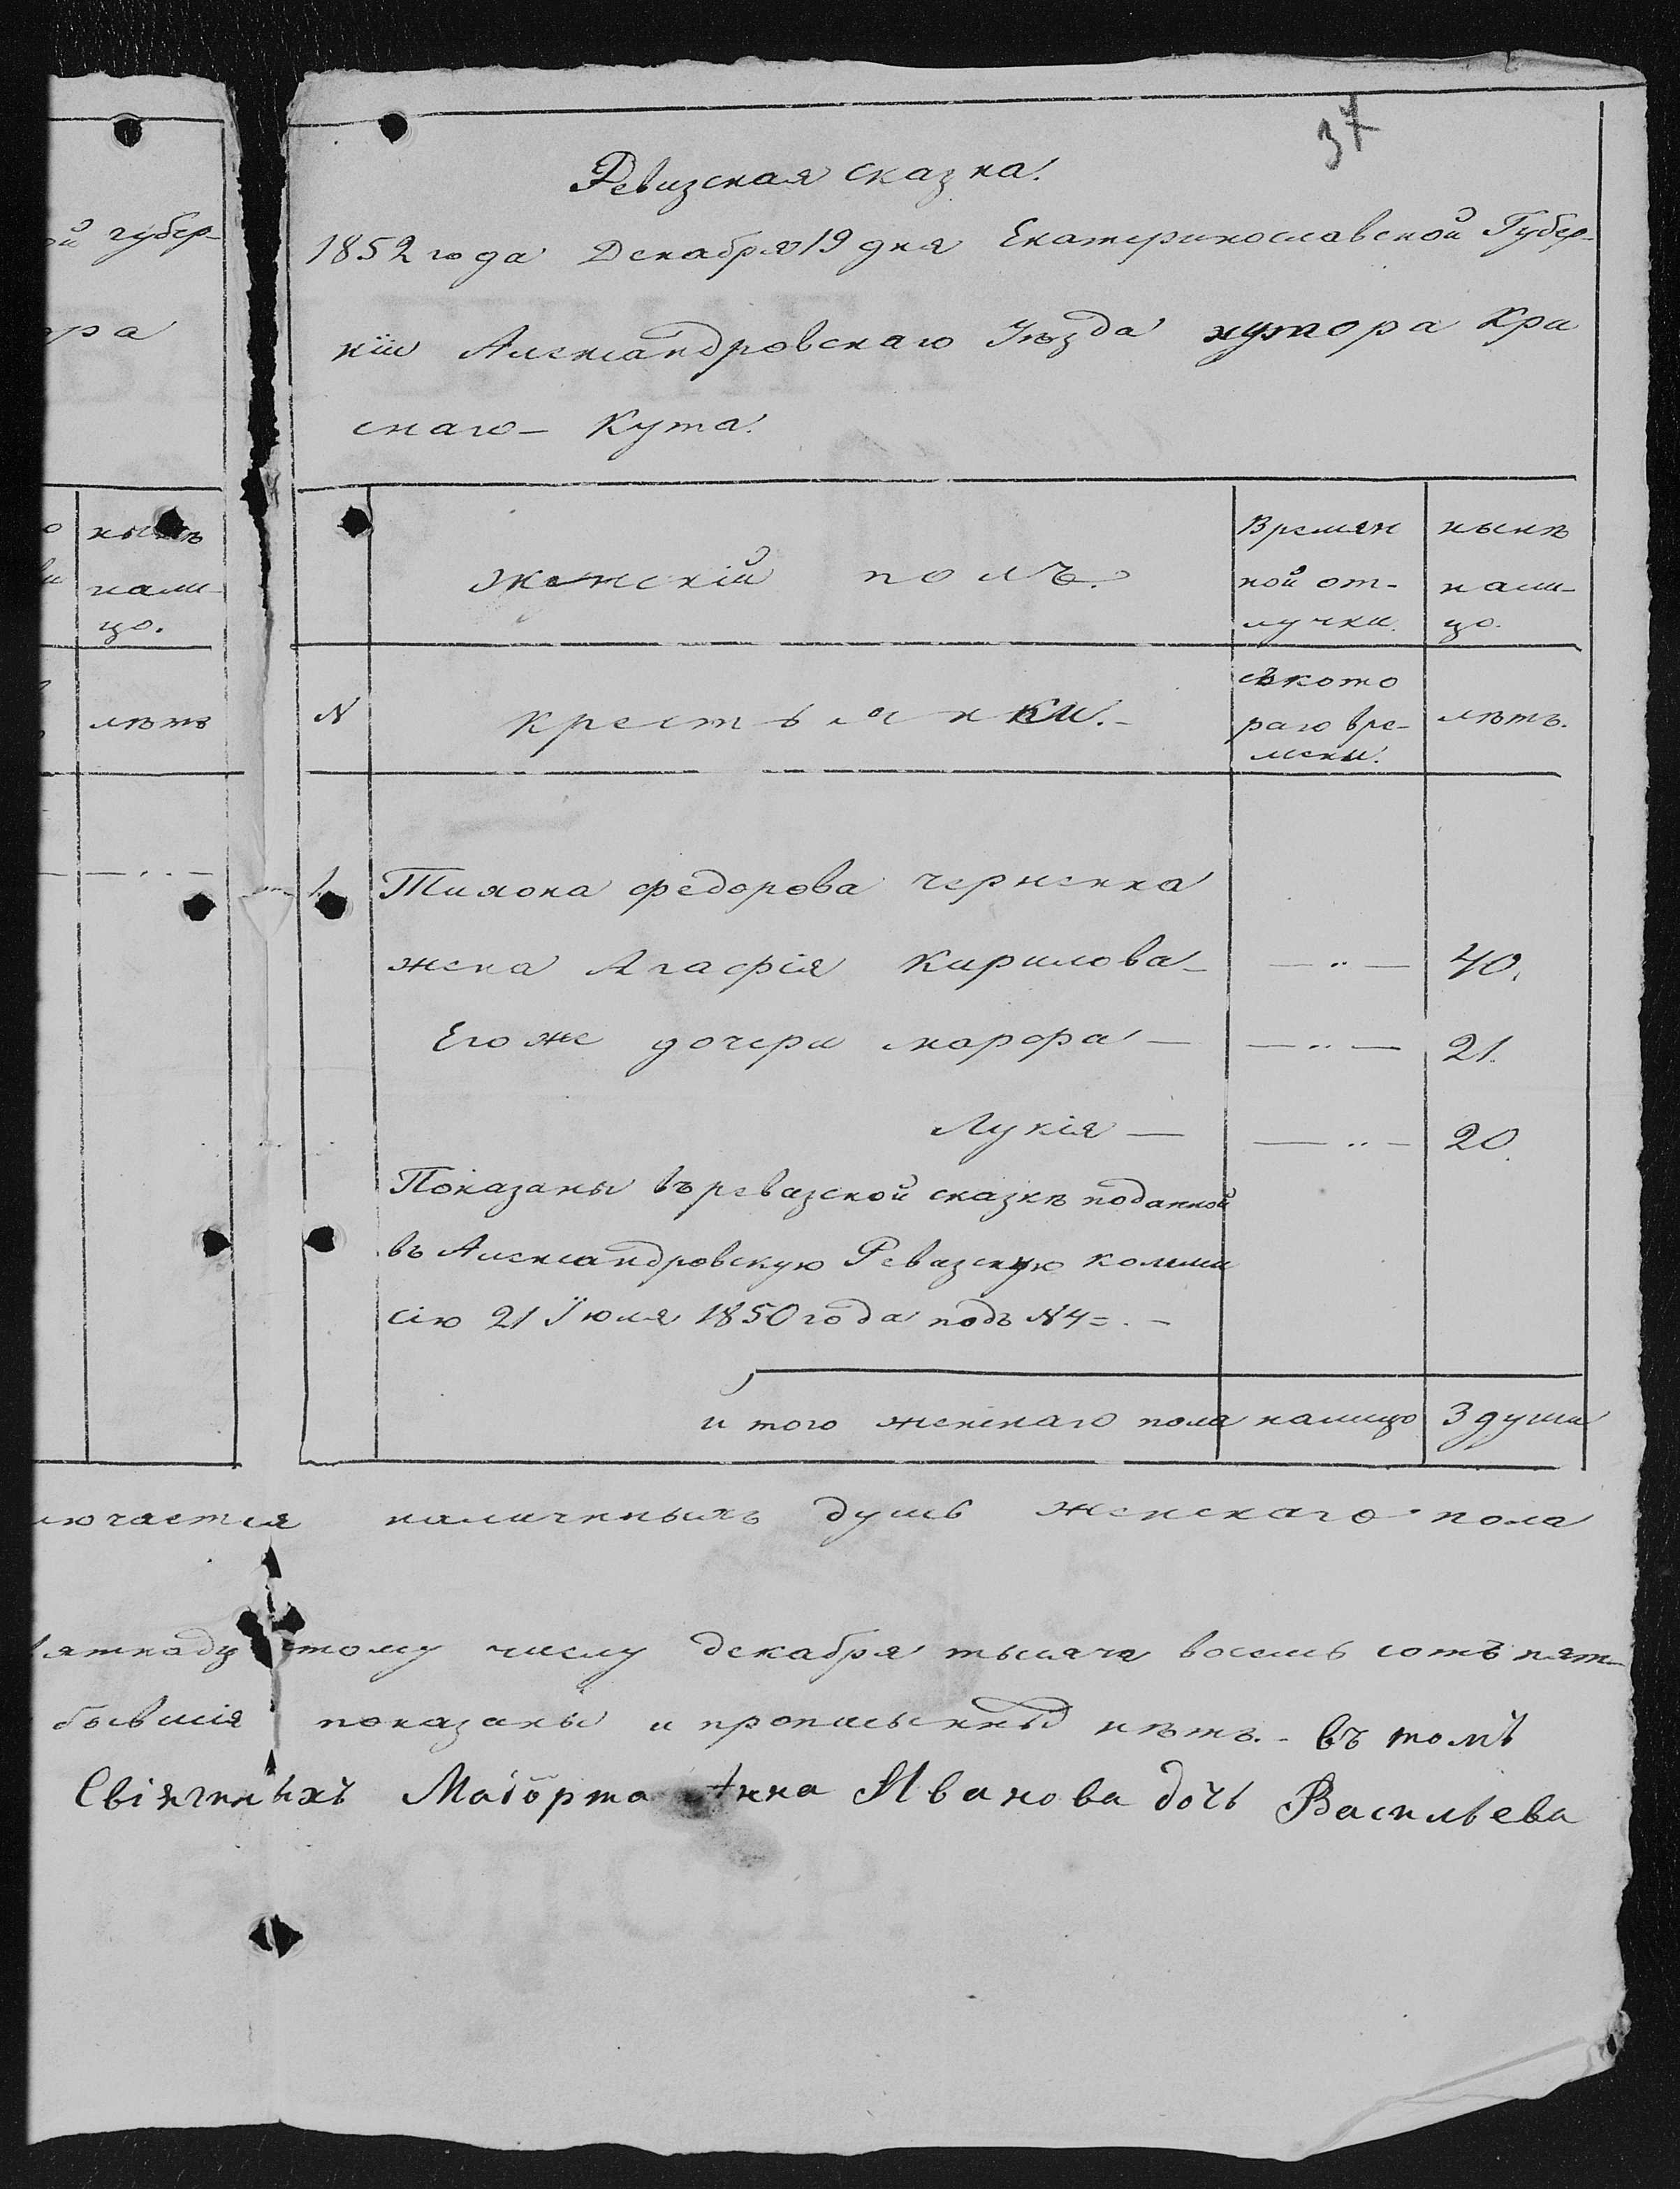 37
Ревизская сказка.
1852 года Декабря 19 дня Екатеринославской Губер-
ніи Александровскаго Уѣзда хутора Кра
снаго- Кута.
й губер-
ра
нынѣ
нали-
цо.
лѣтъ
женскій полъ.
Времян
ной от-
лучки.
нынѣ
нали-
цо.
N
крестьянки.-
съ кото
раго вре-
мени.
лѣтъ.
1. Тимона федорова черненка
жена Агафія Кирилова- — " — 40.
Его же дочери марфа — — " — 21.
Лукія — — " — 20.
Показаны въ ревазской сказкѣ поданной
въ Александровскую Ревазскую комми
сію 21 Іюля 1850 года подъ N 4 =. -
и того женскаго пола налицо 3 души
лючается наличныхъ душъ женскаго пола
ятнадцтому числу декабря тысяча восемь сотъ пят-
бывшія показаны и прописьнныхъ нѣтъ. - въ томъ
Маіорта Анна Иванова дочь Васильева